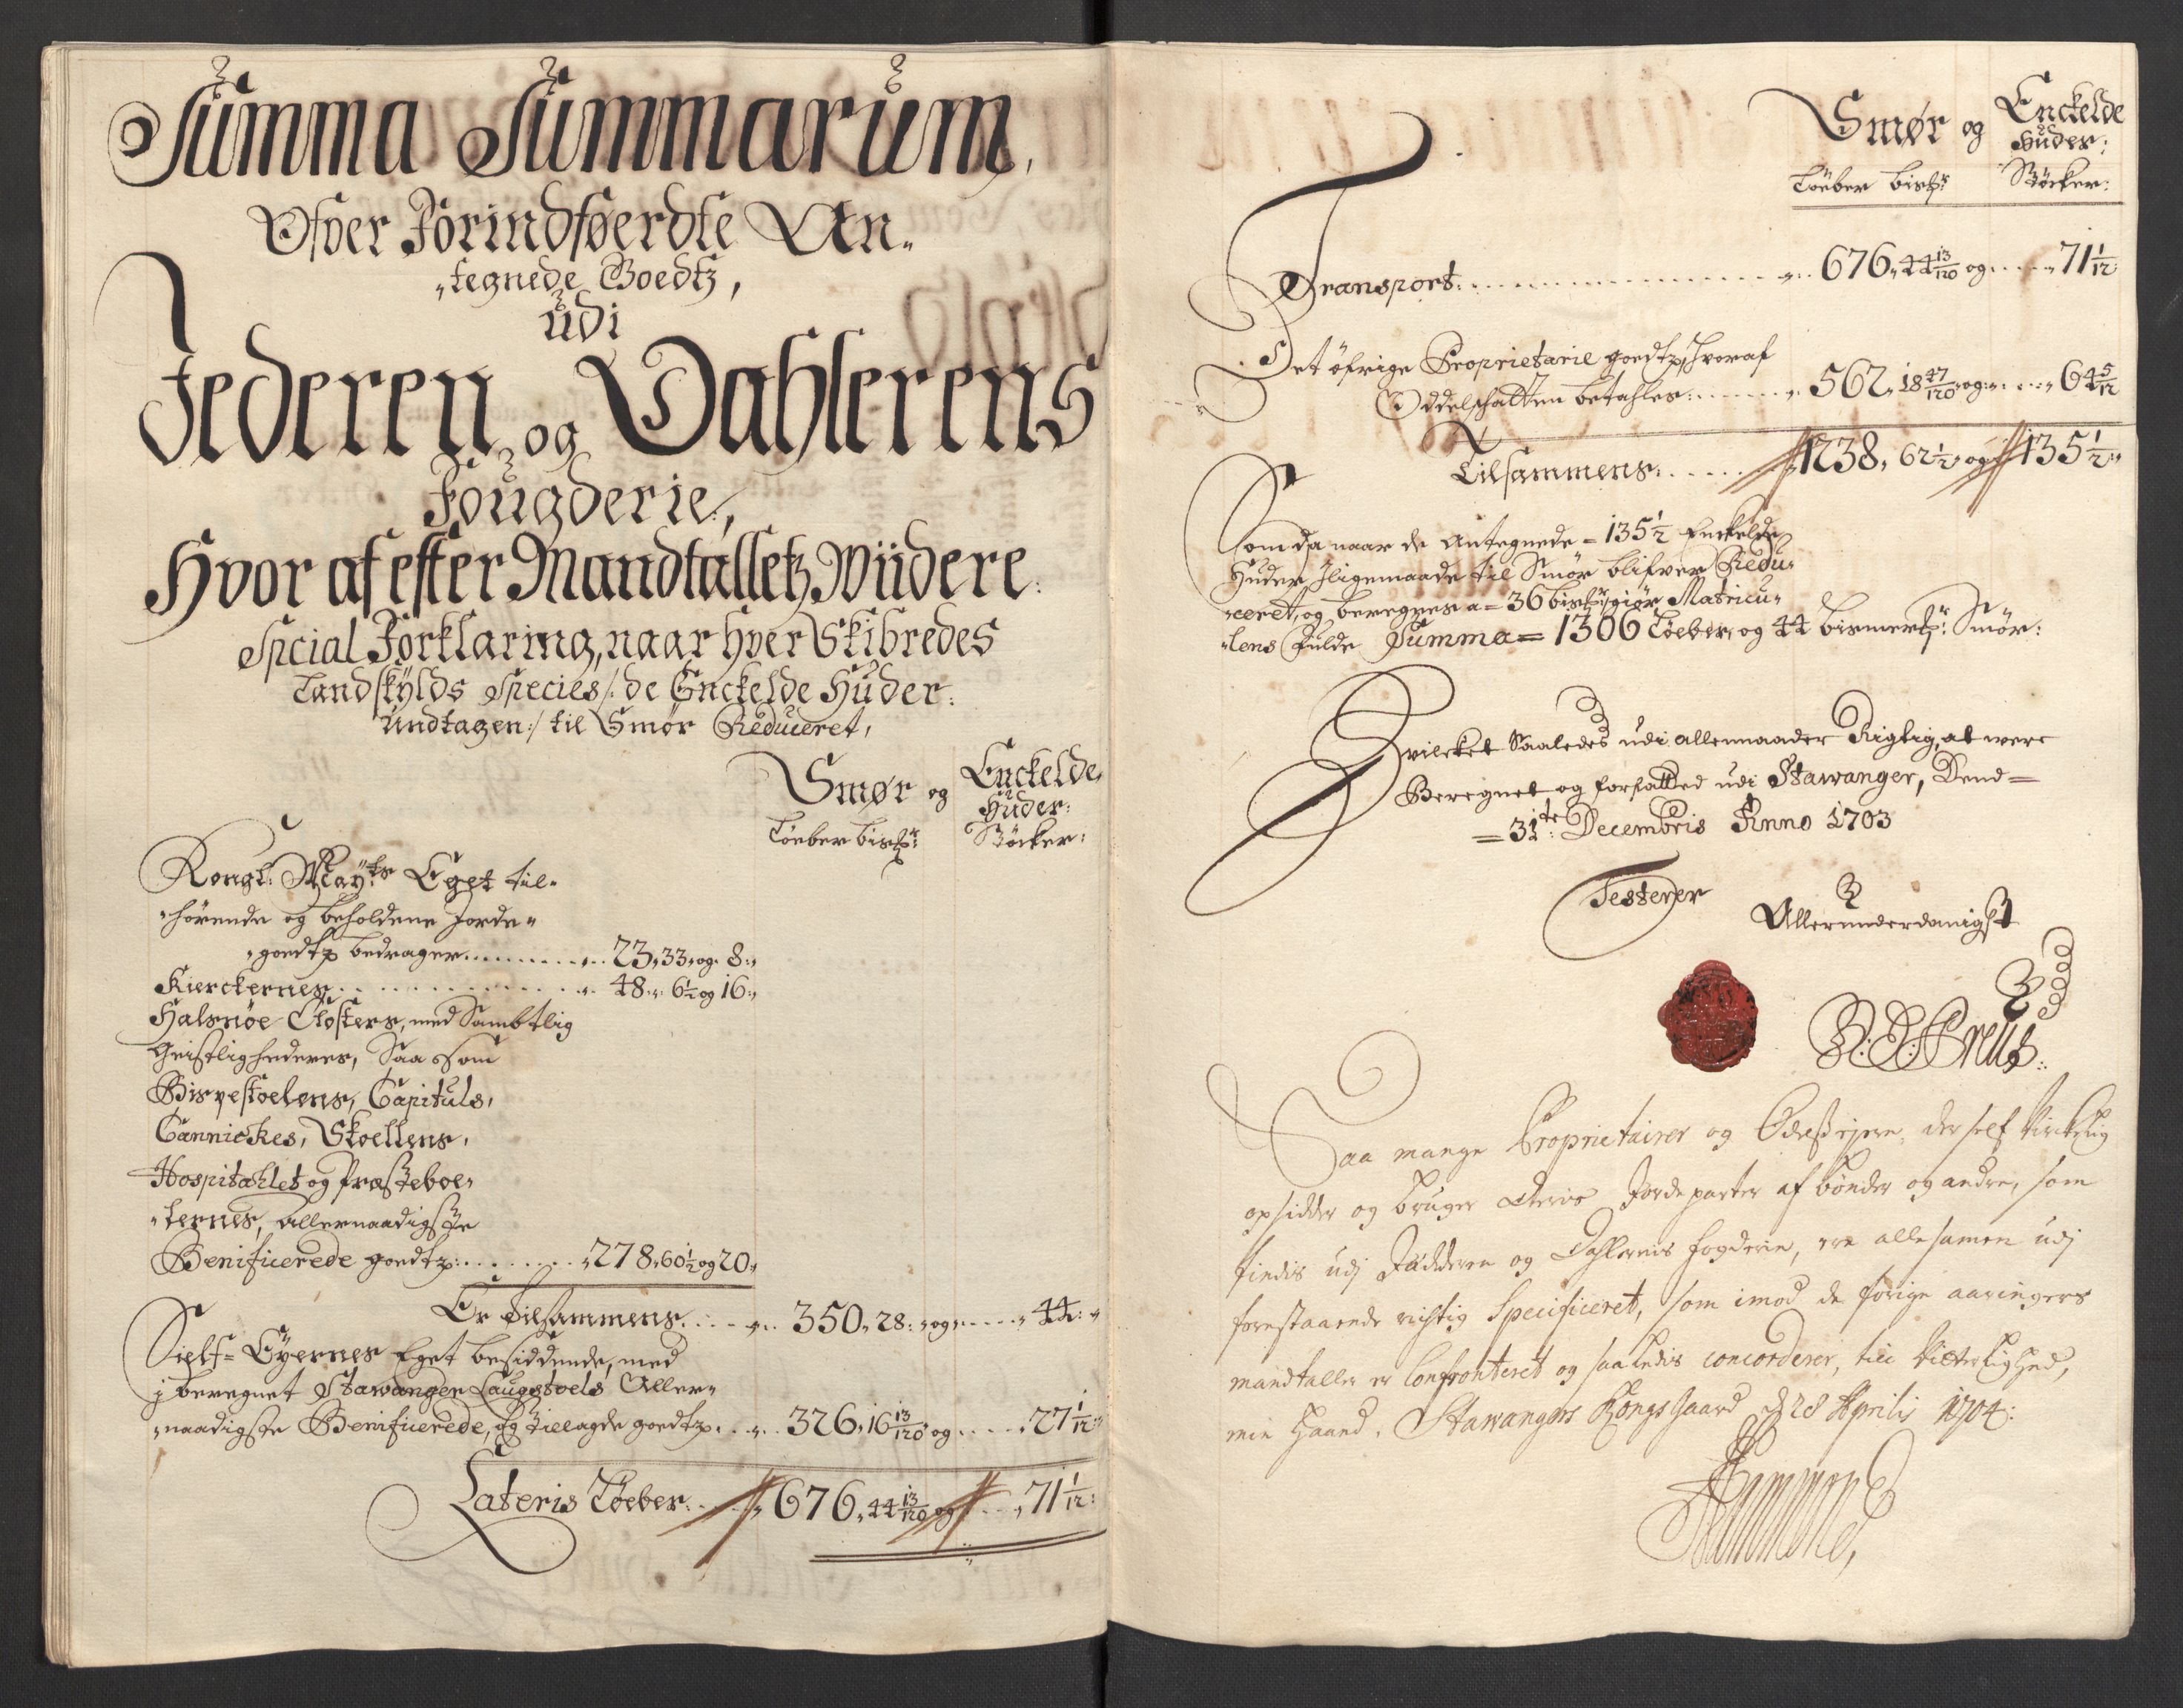 Summa Summarum,
Ofver Forindføerdte An„
„tegnede Goedtz,
udi
Jederen og Dahlerens
Fougderie,
Hvor af efter Mandtalletz Widere
Spcial Forklaring, naar hver Skibredes
Landskÿlds Species /: de Enckelde Huder
Undtagen:/ til Smør Reduceret,
Smør og Enckelde
Huder:
Løeber bispr: Støcker:
Kongl: Mayts Eget til„
„hørende og beholdene Jorde„
„goedtz bedrager 23„33„og„8:„
Kierckernes 48„ 6½ og 16:„
Halsnøe Closters, med Sambtlig
Geistlighederes, Saa som
Bispestoelens, Capituls,
Cannickes, Skoellens,
Hospitahlet og Præsteboe„
„lernes, allernaadigste
Benificerede goedtz: 278„60½ og 20„
Er tilsammens 350„28:„og 44:„
Sielf= Eyernes Eget besiddende, med
j beregnet Stawanger Laugstoels Aller„
„naadigste Benificerede, og tillagde goedtz 326„16 13/120 og 27 1/12:„
Lateris Løeber: 676„44 13/120 og 71 1/12:
Smør og Enckelde
Huder:
Løeber bispr: Støcker:
Transport: 676„44 13/120 og 71 1/12
Det øfrige Proprietarie goedtz, hvoraf
Oddelschatten betahles: 562„18 47/120 og 64 5/12
Tilsammens: 1238„ 62½„ og 135½„
Som da naar de Antegnede = 135½ Enckelde
Huder Iligemaade til Smør blifver Redu„
„ceret, og beregnes a= 36 bispr, giør Matricu„
„lens Fulde Summa= 1306 Løeber, og 44 bismerpr: Smør:
Hvilcket Saaledes udi allemaader Rigtig, at were
Beregnet og forfatted udi Stawanger, Dend=
= 31te: Decembris Anno 1703
Testerer
Allerunderdanigst
Saa mange Proprietairer og Odelsejere, der self virckelig
opsidder og bruger deris Jordeparter af bønder og andre, som
findis udj Jædderen og Dahlernis fogderie, ere allesamen udj
forestaaende rigtig Specificeret, som imod de forige aaringers
mandtaller er Confronteret og saaledis concorderer, till Vitterlighed,
min Haand. Stawangers Kongsgaard d 28 Aprilis 1704: